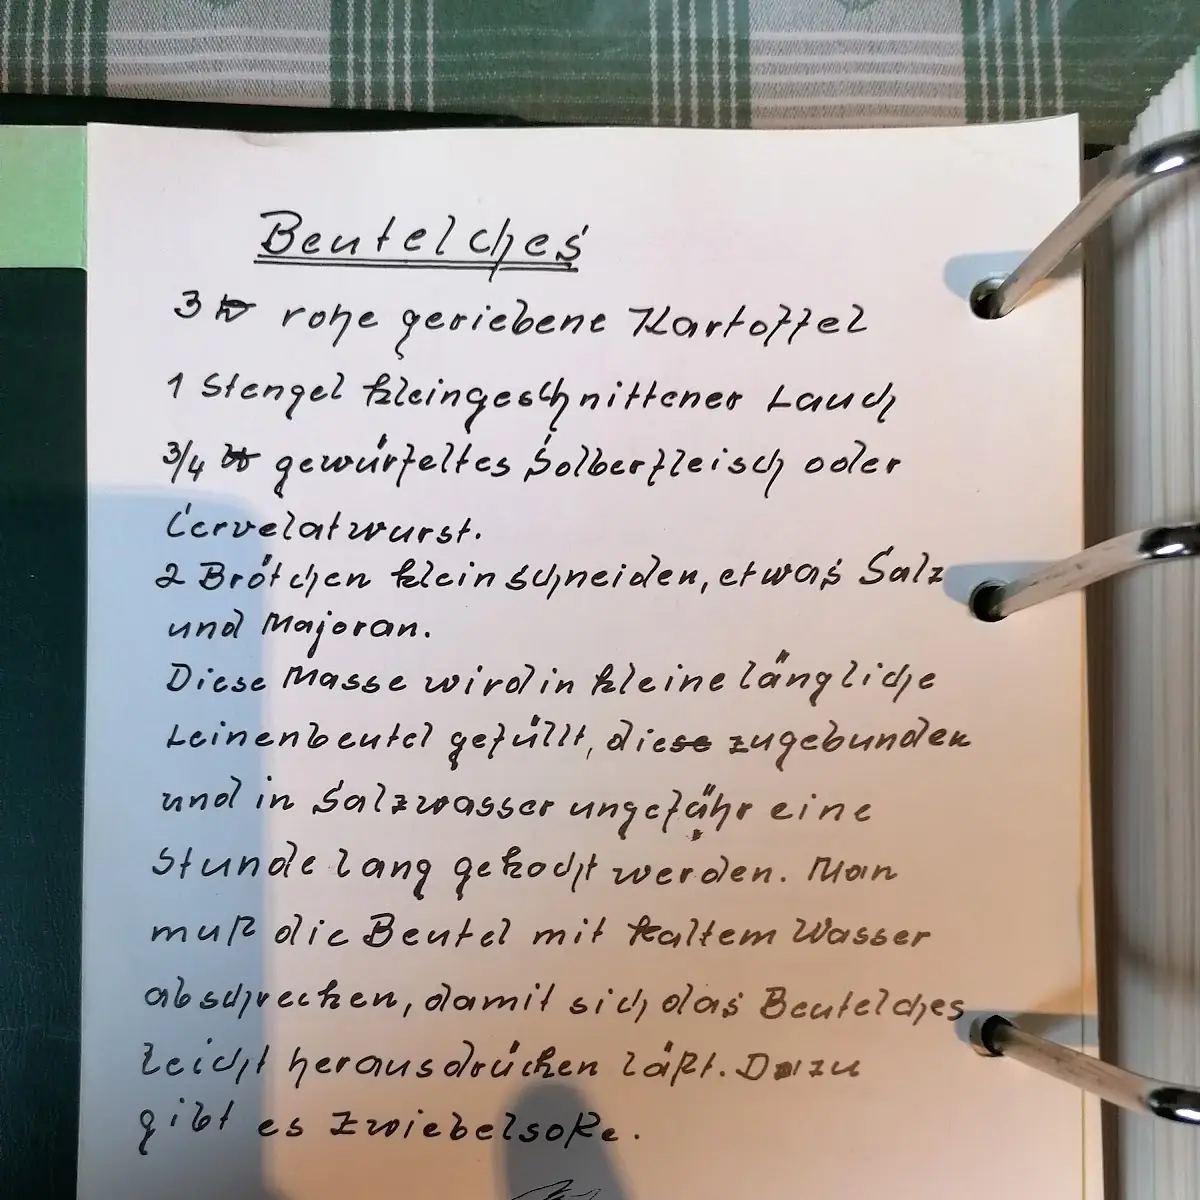 Beutelches
3 ℔ rohe geriebene Kartoffel
1 Stengel kleingeschnittener Lauch
3/4 ℔ gewürfeltes Solberfleisch oder
Cervelatwurst.
2 Brötchen klein schneiden, etwas Salz
und Majoran.
Diese Masse wird in kleine längliche
Leinenbeutel gefüllt, diese zugebunden
und in Salzwasser ungefähr eine
Stunde lang gekocht werden. Man
muß die Beutel mit kaltem Wasser
abschrecken, damit sich das Beutelches
leicht herausdrücken läßt. Dazu
gibt es Zwiebelsoße.